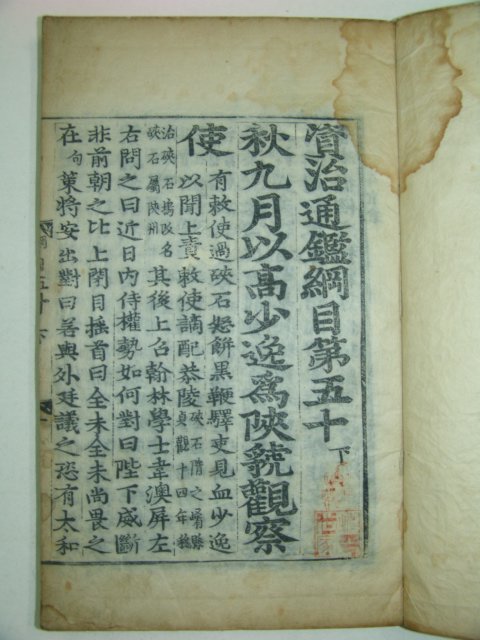 資治通鑑綱目第五十下
秋九月以高少逸爲陝虢觀察
使
有敕使過硤石怒餠黑鞭驛吏見血少逸
以聞上責敕使謫配恭陵
硤石隋之崤縣
貞觀十四年移
治硤石塢改名
硤石屬陝州
其後上召翰林學士韋澳屛左
右問之曰近日内侍權勢如何對曰陛下威斷
非前朝之比上閉目搖首曰全未全未尚畏之
在句策將安出對曰若與外廷議之恐有太和